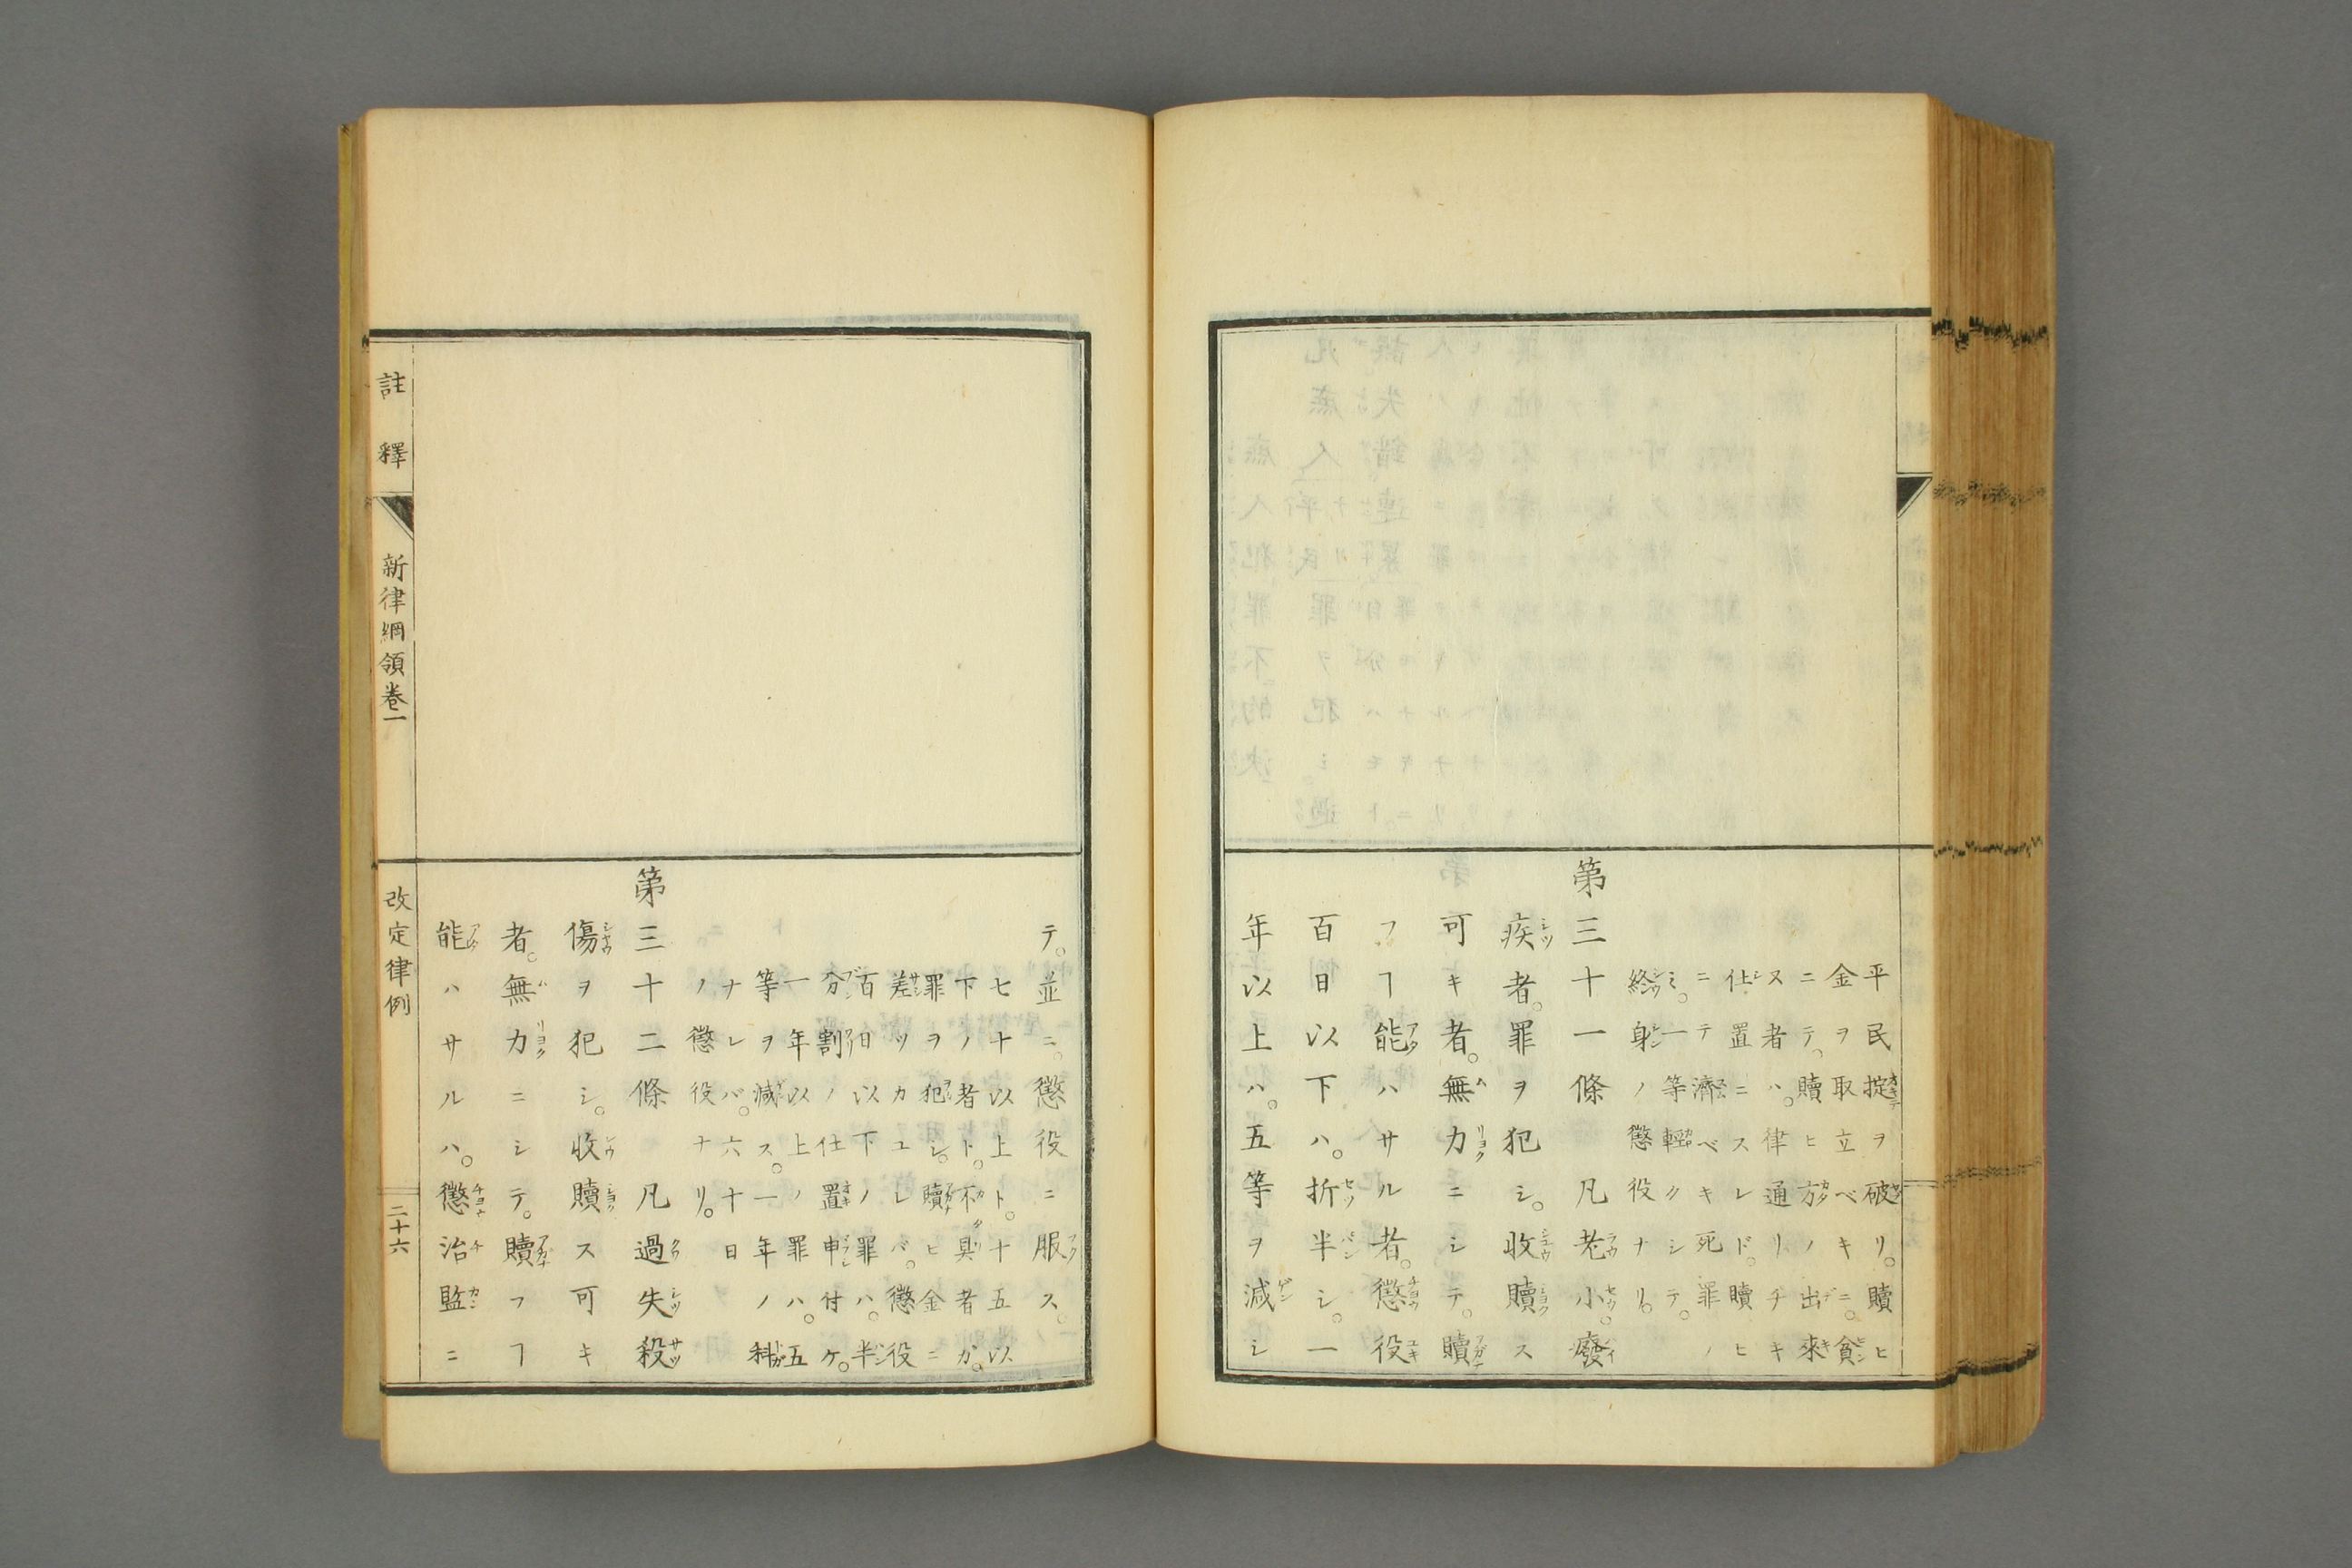 平民掟ヲ破リ。贖ヒ
金ヲ取立ベキニ。貧
ニテ。贖ヒ方ノ出來
ス者ハ。律通リチキ
仕置ニスレド。贖ヒ
ニテ濟ベキ死罪ノ
ミ。一等輕クシテ。
終身ノ懲役ナリ。
第三十一條 凡老小。廢
疾者。罪ヲ犯シ。收贖ス
可キ者。無力ニシテ。贖
フヿ能ハサル者。懲役
百日以下ハ。折半シ。一
年以上ハ。五等ヲ減シ
テ。並ニ。懲役ニ服ス。
七十以上ト。十五以
下ノ者ト。不具者ガ。
罪ヲ犯シ。贖ヒ金ニ
差ツカユレバ。懲役
百日以下ノ罪ハ。半
分割ノ仕置申付ケ。
一年以上ノ罪ハ。五
等ヲ減ス。一年ノ科
ナレバ。六十日
ノ懲役ナリ。
第三十二條 凡過失殺
傷ヲ犯シ。收贖ス可キ
者。無力ニシテ。贖フヿ
能ハサルハ。懲治監ニ
註釋 新律綱領卷一 改定律例 二十六